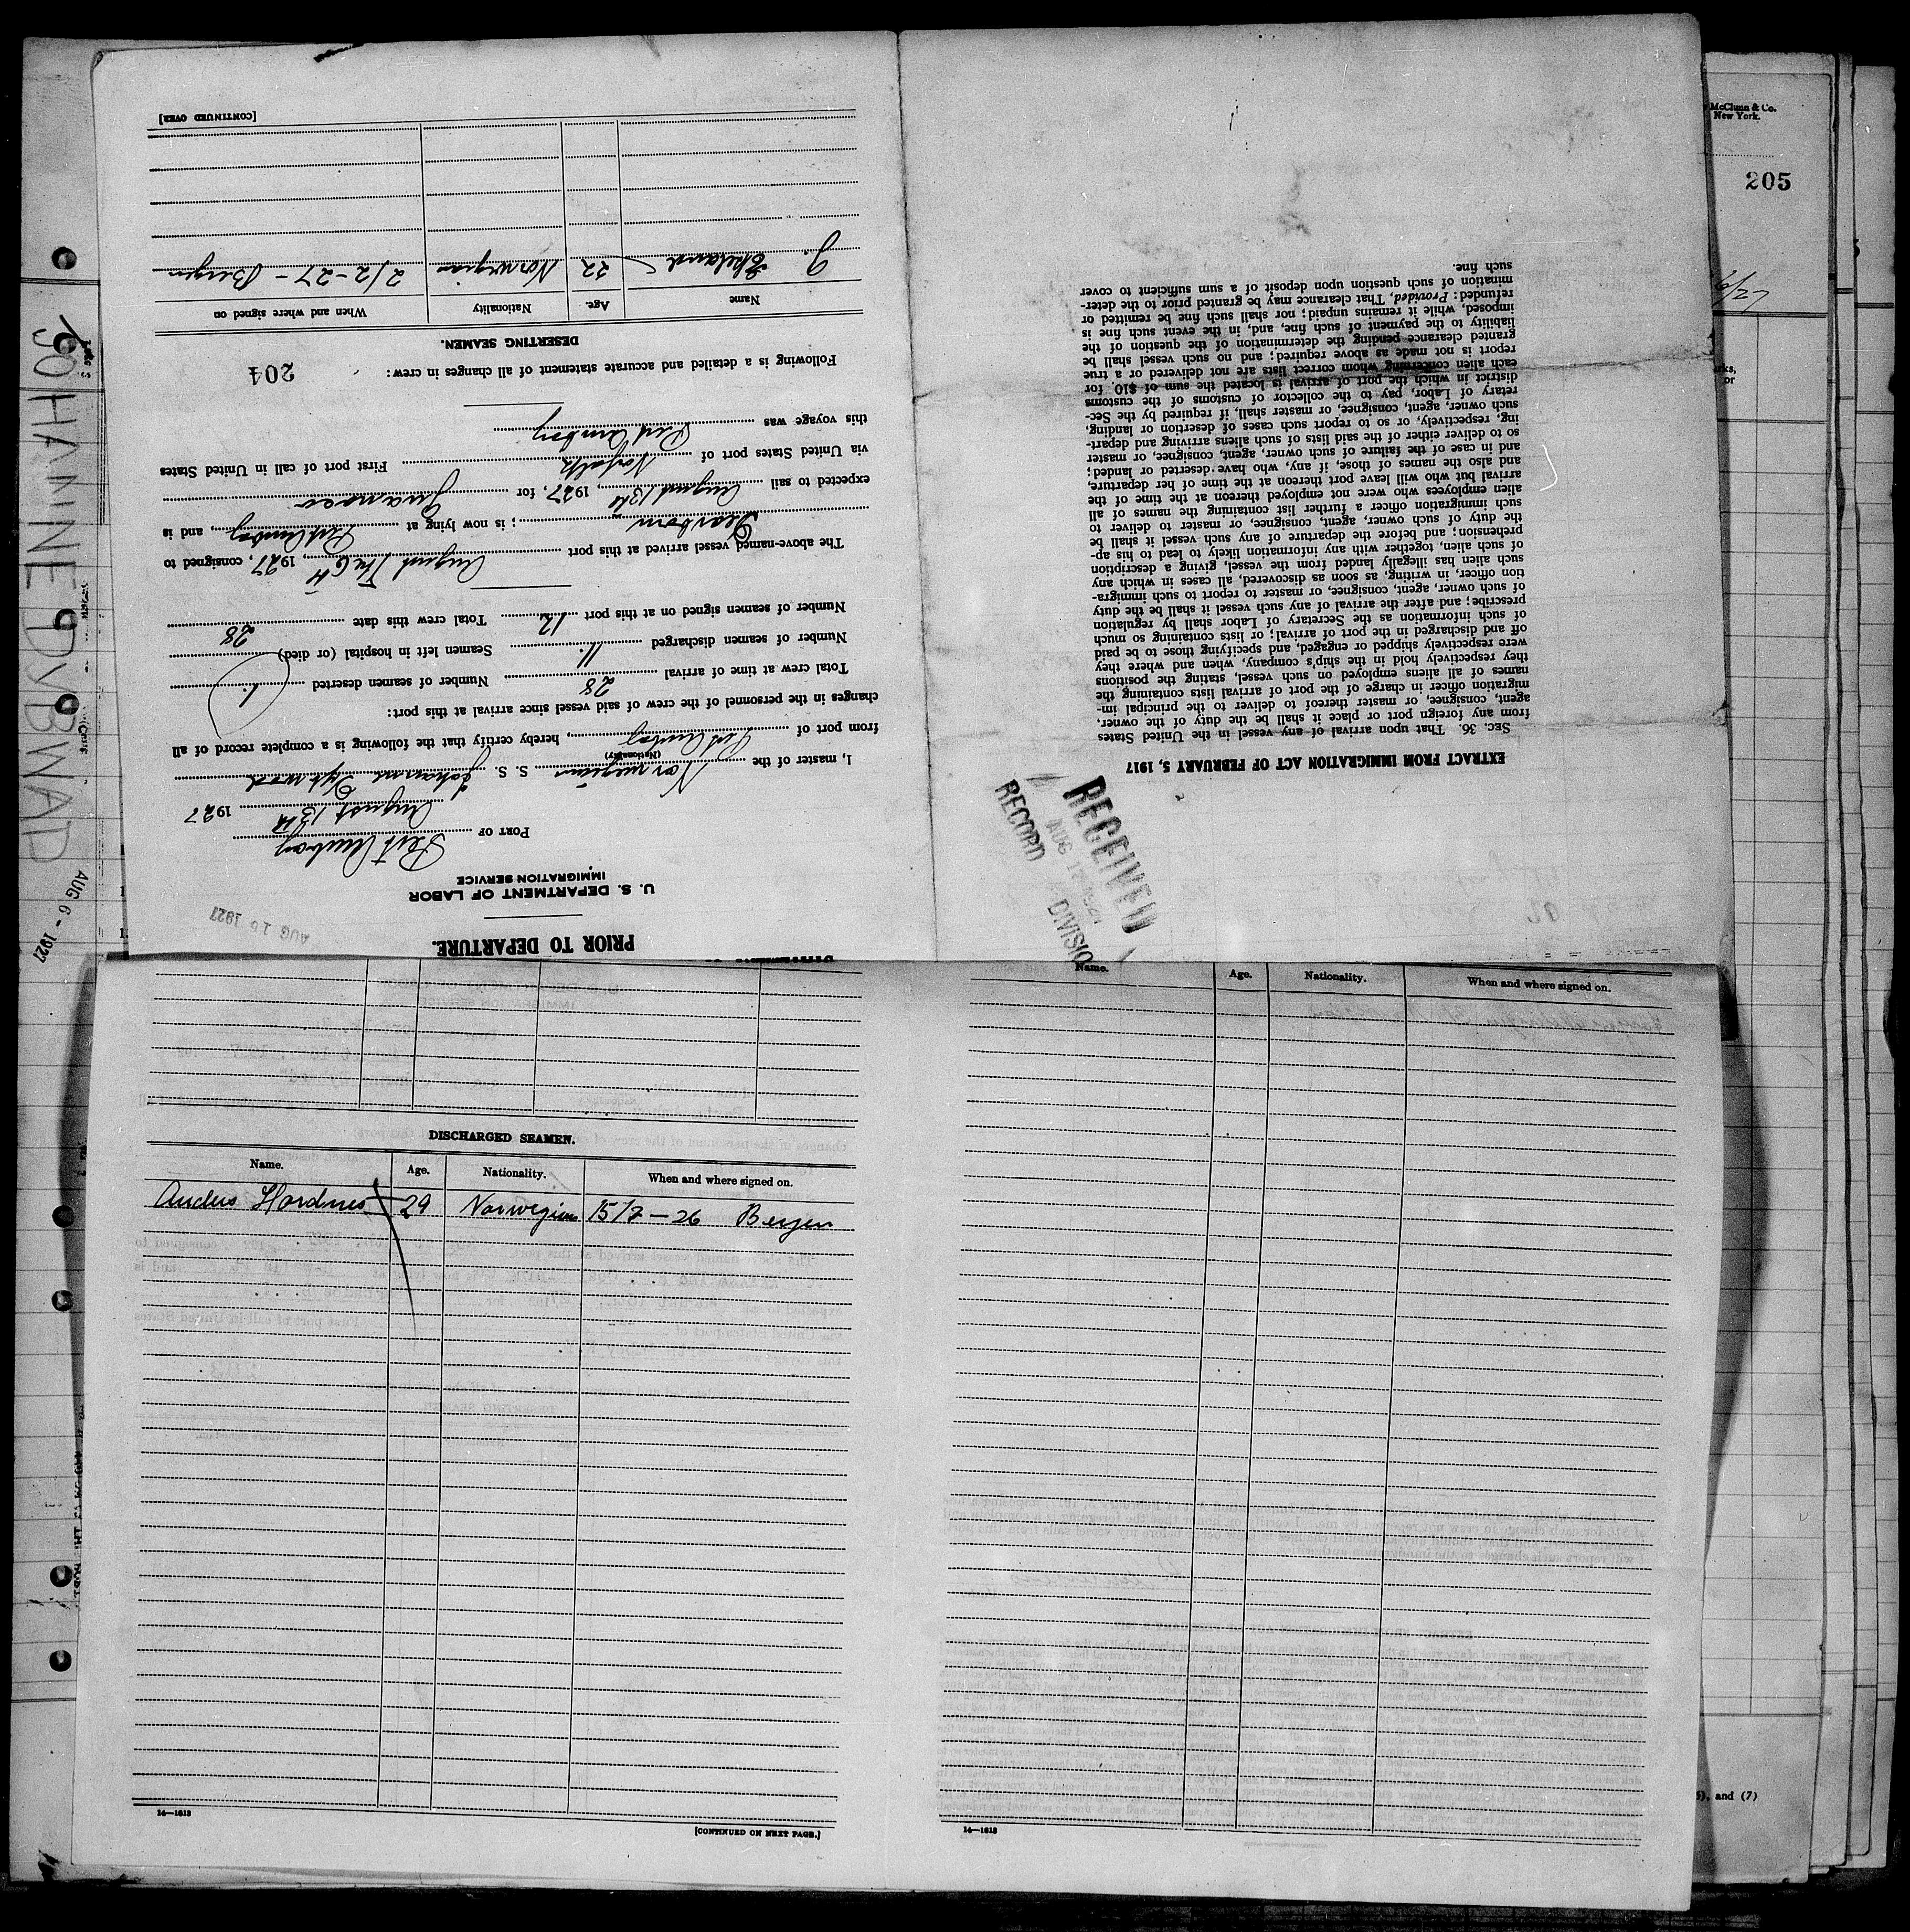 PRIOR TO DEPARTURE.
U. S. DEPARTMENT OF LABOR
IMMIGRATION SERVICE
AUG 16 1927
PORT OF Perth Amboy
August 13th 1927
I, master of the Norwegian S. S. Johanne Dybwad
(Nationality)
from port of Perth Amboy, hereby certify that the following is a complete record of all
changes in the personnel of the crew of said vessel since arrival at this port:
Total crew at time of arrival 28 Number of seamen deserted 1.
Number of seamen discharged 11. Seamen left in hospital (or died)
Number of seamen signed on at this port 12 Total crew this date 28
The above-named vessel arrived at this port August The 6th, 1927, consigned to
Dearborn; is now lying at Perth Amboy, and is
expected to sail August 13th, 1927, for
via United States port of Norfolk First port of call in United States
this voyage was Perth Amboy
Following is a detailed and accurate statement of all changes in crew: 204
DESERTING SEAMEN.
Name Age. Nationality When and where signed on
J. Ekeland 22 Norwegian 2/2-27 - Bergen
[CONTINUED OVER]
RECEIVED
AUG 17 1927
RECORD DIVISION
EXTRACT FROM IMMIGRATION ACT OF FEBRUARY 5, 1917
SEC. 36. That upon arrival of any vessel in the United States
from any foreign port or place it shall be the duty of the owner,
agent, consignee, or master thereof to deliver to the principal im-
migration officer in charge of the port of arrival lists containing the
names of all aliens employed on such vessel, stating the positions
they respectively hold in the ship's company, when and where they
were respectively shipped or engaged, and specifying those to be paid
off and discharged in the port of arrival; or lists containing so much
of such information as the Secretary of Labor shall by regulation
prescribe; and after the arrival of any such vessel it shall be the duty
of such owner, agent, consignee, or master to report to such immigra-
tion officer, in writing, as soon as discovered, all cases in which any
such alien has illegally landed from the vessel, giving a description
of such alien, together with any information likely to lead to his ap-
prehension; and before the departure of any such vessel it shall be
the duty of such owner, agent, consignee, or master to deliver to
such immigration officer a further list containing the names of all
alien employees who were not employed thereon at the time of the
arrival but who will leave port thereon at the time of her departure,
and also the names of those, if any, who have deserted or landed;
and in case of the failure of such owner, agent, consignee, or master
so to deliver either of the said lists of such aliens arriving and depart-
ing, respectively, or so to report such cases of desertion or landing,
such owner, agent, consignee, or master shall, if required by the Sec-
retary of Labor, pay to the collector of customs of the customs
district in which the port of arrival is located the sum of $10 for
each alien concerning whom correct lists are not delivered or a true
report is not made as above required; and no such vessel shall be
granted clearance pending the determination of the question of the
liability to the payment of such fine, and, in the event such fine is
imposed, while it remains unpaid; nor shall such fine be remitted or
refunded: Provided, That clearance may be granted prior to the deter-
mination of such question upon deposit of a sum sufficient to cover
such fine.
DISCHARGED SEAMEN.
Name. Age. Nationality. When and where signed on.
Anders Hordnes 29 Norwegian 15/7-26 Bergen
14—1613
[CONTINUED ON NEXT PAGE.]
Name. Age. Nationality. When and where signed on.
14—1613
JOHANNE DYBWAD
AUG 6 - 1927
McClunn & Co.
New York.
205
and (7)